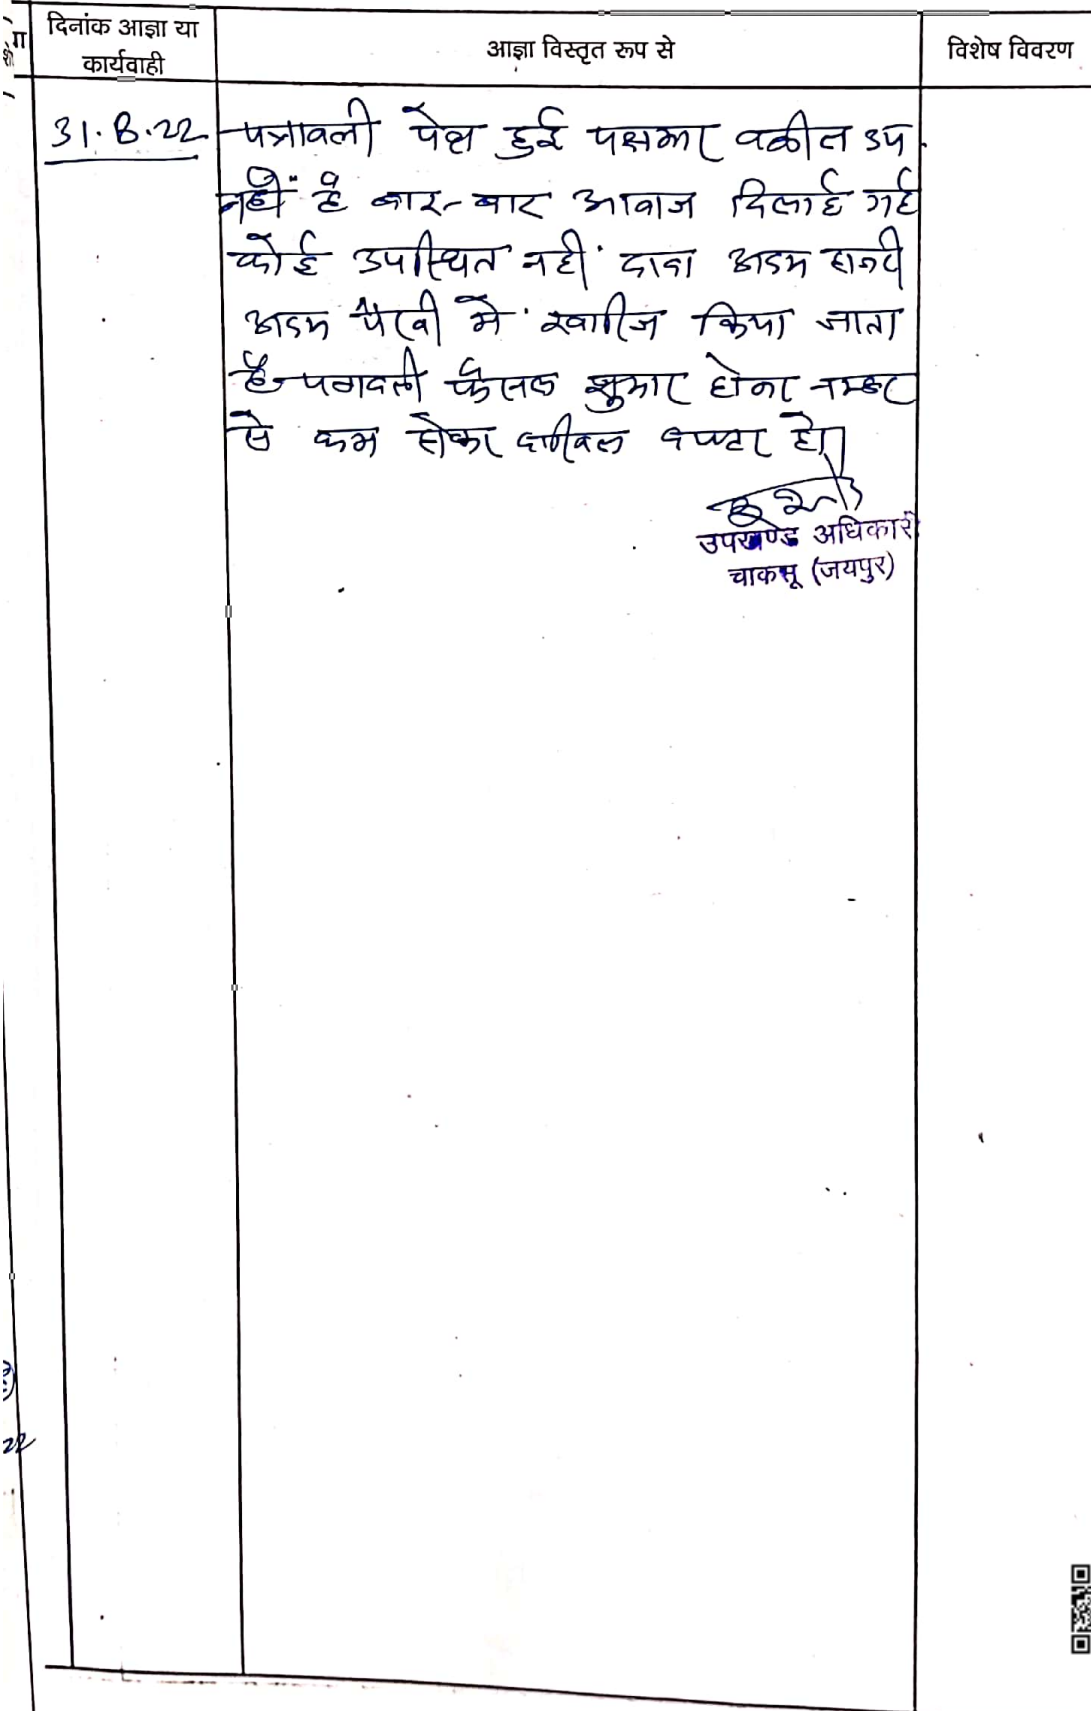 दिनांक आज्ञा या
कार्यवाही
आज्ञा विस्तृत रूप से
विशेष विवरण
31.8.22
पत्रावली पेश हुई पक्षकार वकील उप.
नहीं है बार-बार आवाज दिलाई गई
कोई उपस्थित नहीं दावा अदम हाजरी
अदम पैरवी में खारीज किया जाता
है पत्रावली फैसल शुमार होकर नम्बर
से कम होकर दाखिल दफ्तर हो।
उपखण्ड अधिकारी
चाकसू (जयपुर)
22